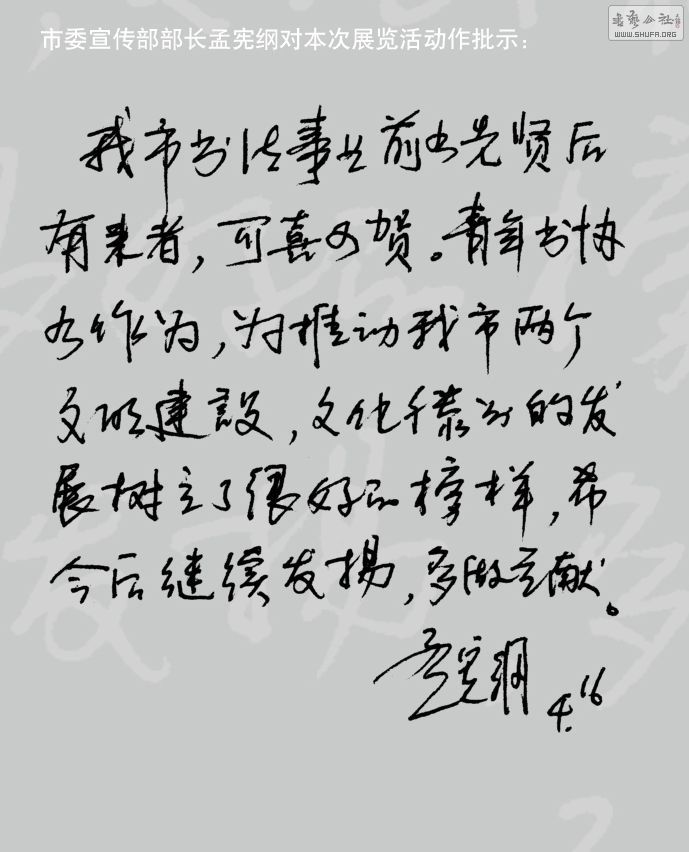 市委宣传部部长孟宪纲对本次展览活动作批示：
書藝公社
WWW.SHUFA.ORG
我市书法事业前有先贤后
有来者，可喜可贺。青年书协
有作为，为推动我市两个
文明建設，文化千泰州的发
展树立了很好的榜样，希
今后继续发揚，多做贡献。
孟宪纲 4.16